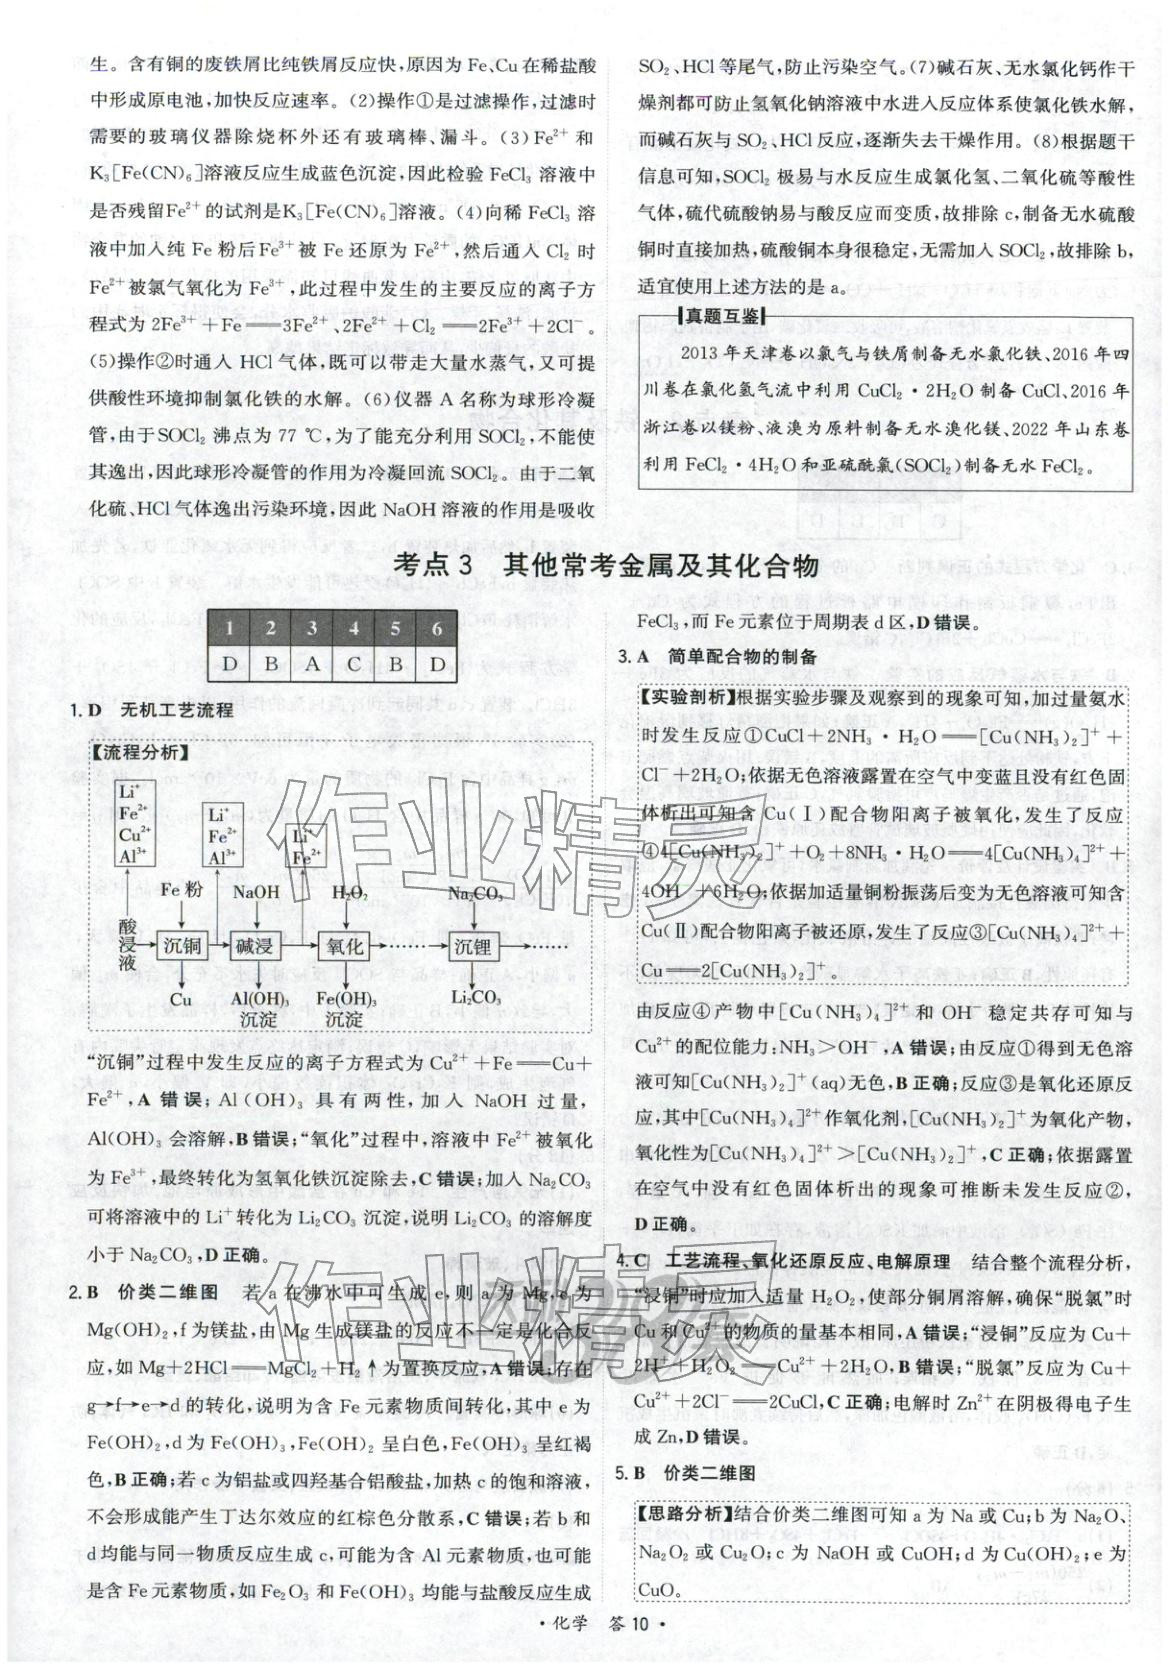 生。含有铜的废铁屑比纯铁屑反应快,原因为 Fe、Cu 在稀盐酸
中形成原电池,加快反应速率。(2)操作①是过滤操作,过滤时
需要的玻璃仪器除烧杯外还有玻璃棒、漏斗。(3)Fe²⁺ 和
K₃[Fe(CN)₆]溶液反应生成蓝色沉淀,因此检验 FeCl₃ 溶液中
是否残留Fe²⁺ 的试剂是K₃[Fe(CN)₆]溶液。(4)向稀 FeCl₃ 溶
液中加入纯 Fe 粉后Fe³⁺ 被 Fe 还原为 Fe²⁺,然后通入 Cl₂ 时
Fe²⁺被氯气氧化为 Fe³⁺,此过程中发生的主要反应的离子方
程式为 2Fe³⁺+Fe══3Fe²⁺、2Fe²⁺+Cl₂══2Fe³⁺+2Cl⁻。
(5)操作②时通入 HCl 气体,既可以带走大量水蒸气,又可提
供酸性环境抑制氯化铁的水解。(6)仪器 A 名称为球形冷凝
管,由于SOCl₂ 沸点为 77 ℃,为了能充分利用 SOCl₂,不能使
其逸出,因此球形冷凝管的作用为冷凝回流 SOCl₂。由于二氧
化硫、HCl 气体逸出污染环境,因此 NaOH 溶液的作用是吸收
SO₂、HCl 等尾气,防止污染空气。(7)碱石灰、无水氯化钙作干
燥剂都可防止氢氧化钠溶液中水进入反应体系使氯化铁水解,
而碱石灰与 SO₂、HCl 反应,逐渐失去干燥作用。(8)根据题干
信息可知,SOCl₂ 极易与水反应生成氯化氢、二氧化硫等酸性
气体,硫代硫酸钠易与酸反应而变质,故排除 c,制备无水硫酸
铜时直接加热,硫酸铜本身很稳定,无需加入 SOCl₂,故排除 b,
适宜使用上述方法的是 a。
真题互鉴
2013 年天津卷以氯气与铁屑制备无水氯化铁、2016 年四
川卷在氯化氢气流中利用 CuCl₂·2H₂O 制备 CuCl、2016 年
浙江卷以镁粉、液溴为原料制备无水溴化镁、2022 年山东卷
利用 FeCl₂·4H₂O 和亚硫酰氯(SOCl₂)制备无水 FeCl₂。
考点 3 其他常考金属及其化合物
1 2 3 4 5 6
D B A C B D
1. D 无机工艺流程
【流程分析】
Li⁺
Fe²⁺
Cu²⁺
Al³⁺
Li⁺
Fe²⁺
Al³⁺
Li⁺
Fe²⁺
Fe 粉 NaOH H₂O₂ Na₂CO₃
酸浸液 沉铜 碱浸 氧化 …… 沉锂 ……
Cu Al(OH)₃ Fe(OH)₃ Li₂CO₃
沉淀 沉淀
“沉铜”过程中发生反应的离子方程式为 Cu²⁺+Fe══Cu+
Fe²⁺,A 错误;Al(OH)₃ 具有两性,加入 NaOH 过量,
Al(OH)₃ 会溶解,B 错误;“氧化”过程中,溶液中 Fe²⁺ 被氧化
为 Fe³⁺,最终转化为氢氧化铁沉淀除去,C 错误;加入 Na₂CO₃
可将溶液中的 Li⁺转化为 Li₂CO₃ 沉淀,说明 Li₂CO₃ 的溶解度
小于 Na₂CO₃,D 正确。
2. B 价类二维图 若 a 在沸水中可生成 e,则 a 为 Mg,e 为
Mg(OH)₂,f 为镁盐,由 Mg 生成镁盐的反应不一定是化合反
应,如 Mg+2HCl══MgCl₂+H₂↑为置换反应,A 错误;存在
g→f→e→d 的转化,说明为含 Fe 元素物质间转化,其中 e 为
Fe(OH)₂,d 为 Fe(OH)₃,Fe(OH)₂ 呈白色,Fe(OH)₃ 呈红褐
色,B 正确;若 c 为铝盐或四羟基合铝酸盐,加热 c 的饱和溶液,
不会形成能产生丁达尔效应的红棕色分散系,C 错误;若 b 和
d 均能与同一物质反应生成 c,可能为含 Al 元素物质,也可能
是含 Fe 元素物质,如 Fe₂O₃ 和 Fe(OH)₃ 均能与盐酸反应生成
FeCl₃,而 Fe 元素位于周期表 d 区,D 错误。
3. A 简单配合物的制备
【实验剖析】根据实验步骤及观察到的现象可知,加过量氨水
时发生反应①CuCl+2NH₃·H₂O══[Cu(NH₃)₂]⁺+
Cl⁻+2H₂O;依据无色溶液露置在空气中变蓝且没有红色固
体析出可知含 Cu(Ⅰ)配合物阳离子被氧化,发生了反应
④4[Cu(NH₃)₂]⁺+O₂+8NH₃·H₂O══4[Cu(NH₃)₄]²⁺+
4OH⁻+6H₂O;依据加适量铜粉振荡后变为无色溶液可知含
Cu(Ⅱ)配合物阳离子被还原,发生了反应③[Cu(NH₃)₄]²⁺+
Cu══2[Cu(NH₃)₂]⁺。
由反应④产物中[Cu(NH₃)₄]²⁺和 OH⁻ 稳定共存可知与
Cu²⁺的配位能力:NH₃>OH⁻,A 错误;由反应①得到无色溶
液可知[Cu(NH₃)₂]⁺(aq)无色,B 正确;反应③是氧化还原反
应,其中[Cu(NH₃)₄]²⁺作氧化剂,[Cu(NH₃)₂]⁺为氧化产物,
氧化性为[Cu(NH₃)₄]²⁺>[Cu(NH₃)₂]⁺,C 正确;依据露置
在空气中没有红色固体析出的现象可推断未发生反应②,
D 正确。
4. C 工艺流程、氧化还原反应、电解原理 结合整个流程分析,
“浸铜”时应加入适量 H₂O₂,使部分铜屑溶解,确保“脱氯”时
Cu 和 Cu²⁺的物质的量基本相同,A 错误;“浸铜”反应为 Cu+
2H⁺+H₂O₂══Cu²⁺+2H₂O,B 错误;“脱氯”反应为 Cu+
Cu²⁺+2Cl⁻══2CuCl,C 正确;电解时 Zn²⁺在阴极得电子生
成 Zn,D 错误。
5. B 价类二维图
【思路分析】结合价类二维图可知 a 为 Na 或 Cu;b 为 Na₂O、
Na₂O₂ 或 Cu₂O;c 为 NaOH 或 CuOH;d 为 Cu(OH)₂;e 为
CuO。
·化学 答 10·
作业精灵
作业精灵